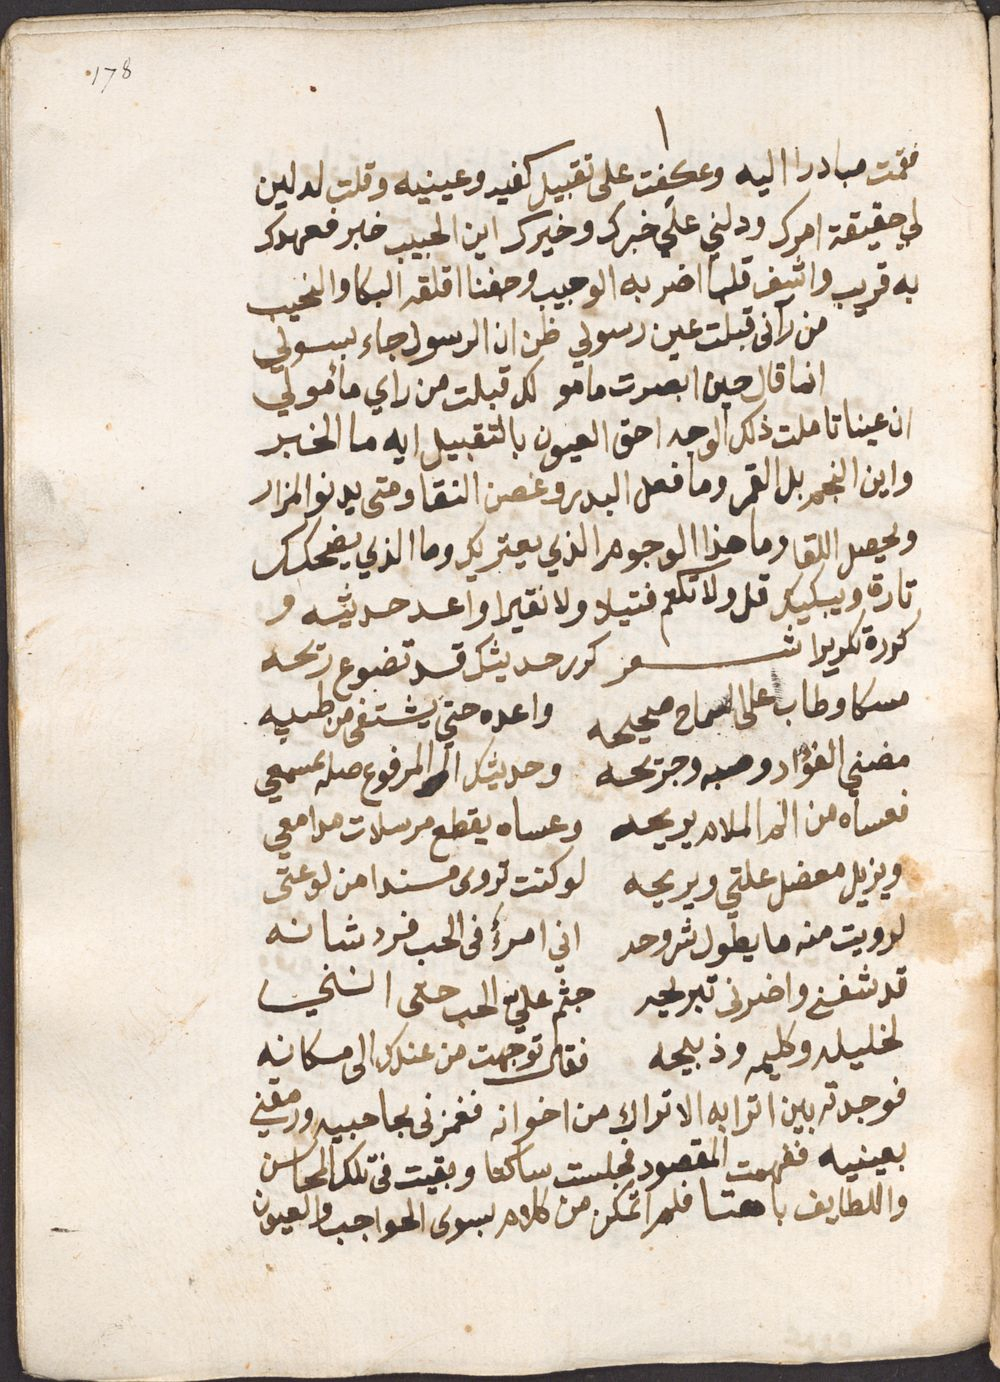 178
فقمت مبادرا اليه وعكفت على تقبيل كفيه وعينيه وقلت له لين
لي حقيقة امرك ودلني على خبرك وخيرك اين الحبيب خابر فعهدك
به قريب واشف قلبا اضر به الوجيب وجفنا اقلقه البكا والنحيب
من رآنى قبلت عين رسولي ظن ان الرسول جاء بسولي
انما قال حين ابصرت مامو لك قبلت من راي مأمولي
ان عينا تاملت ذلك الوجه احق العيون بالتقبيل ايه ما الخبر
واين النجم بل القمر وما فعل البدر وغصن النقا ومتى يدنو المزار
ويحصل اللقا وما هذا الوجوم الذي يعتريك وما الذي يضحكك
تارة ويبكيك قل ولا تكتم فتيلا ولا نقيرا واعد حديثه و
كررة تكريرا شعر كرر حديثك قد تضوع ريحه
مسكا وطاب على السماح صحيحه واعده حتي يشتفى من طيبه
مضني الفؤاد وصبه وجريحه وحديثك المرفوع صله بمسمعي
فعساه من الم الملام يريحه وعساه يقطع مرسلات مدامعي
ويزيل معضل علتي ويريحه لو كنت تروى مسندا من لوعتى
لرويت منه ما يطول شروحه اني امرؤ فى الحب فرد شانه
قد شفني واضرنى تبريحه جثم علي الحب حتى انني
لخليله وكليمه وذبيحه فقال توجهت من عندك الى مكانه
فوجدته بين اترابه الاتراك من اخوانه فغمزنى بحاجبيه ورمقني
بعينيه ففهمت المقصود فجلست ساكتا وبقيت فى تلك المحاسن
واللطايف باهتا فلم اتمكن من كلام بسوى الحواجب والعيون